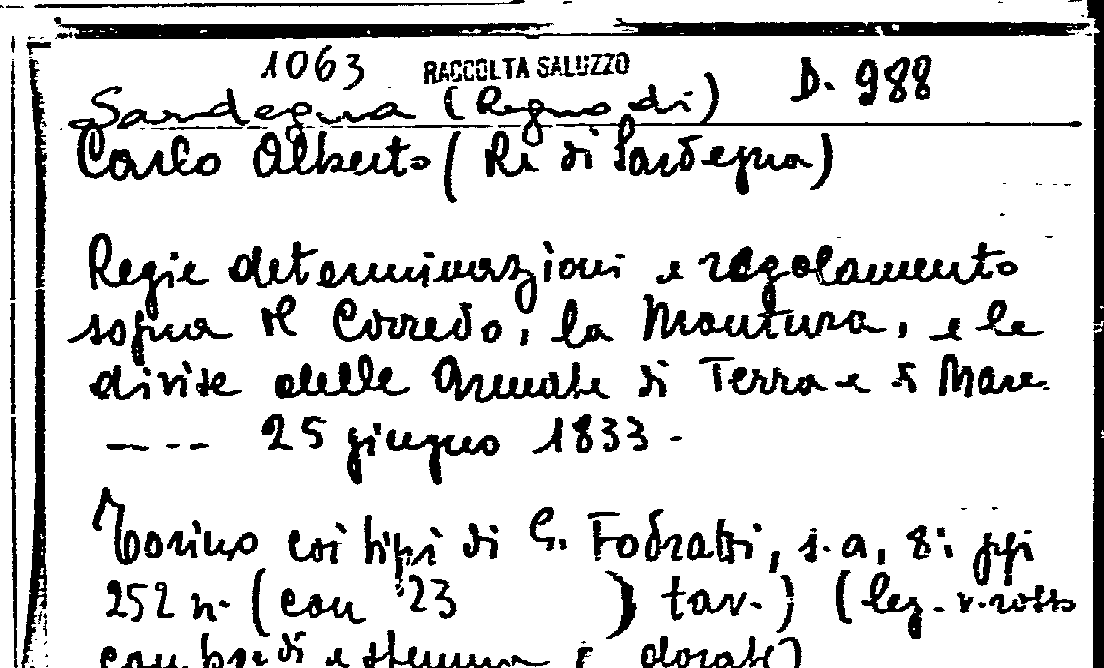 1063 RACCOLTA SALUZZO D. 988
Sardegna (Regno di)
Carlo Alberto (Re di Sardegna)
Regie determinazioni e regolamento
sopra il Corredo, la Montura, e le
divise delle Armate di Terra e di Mare
---- 25 giugno 1833 -
Torino coi tipi di G. Fodratti, s.a, 8°: ppi
252 n. (con 23 ) tav.) (leg. v. rosso
con bordi e stemma dorati)